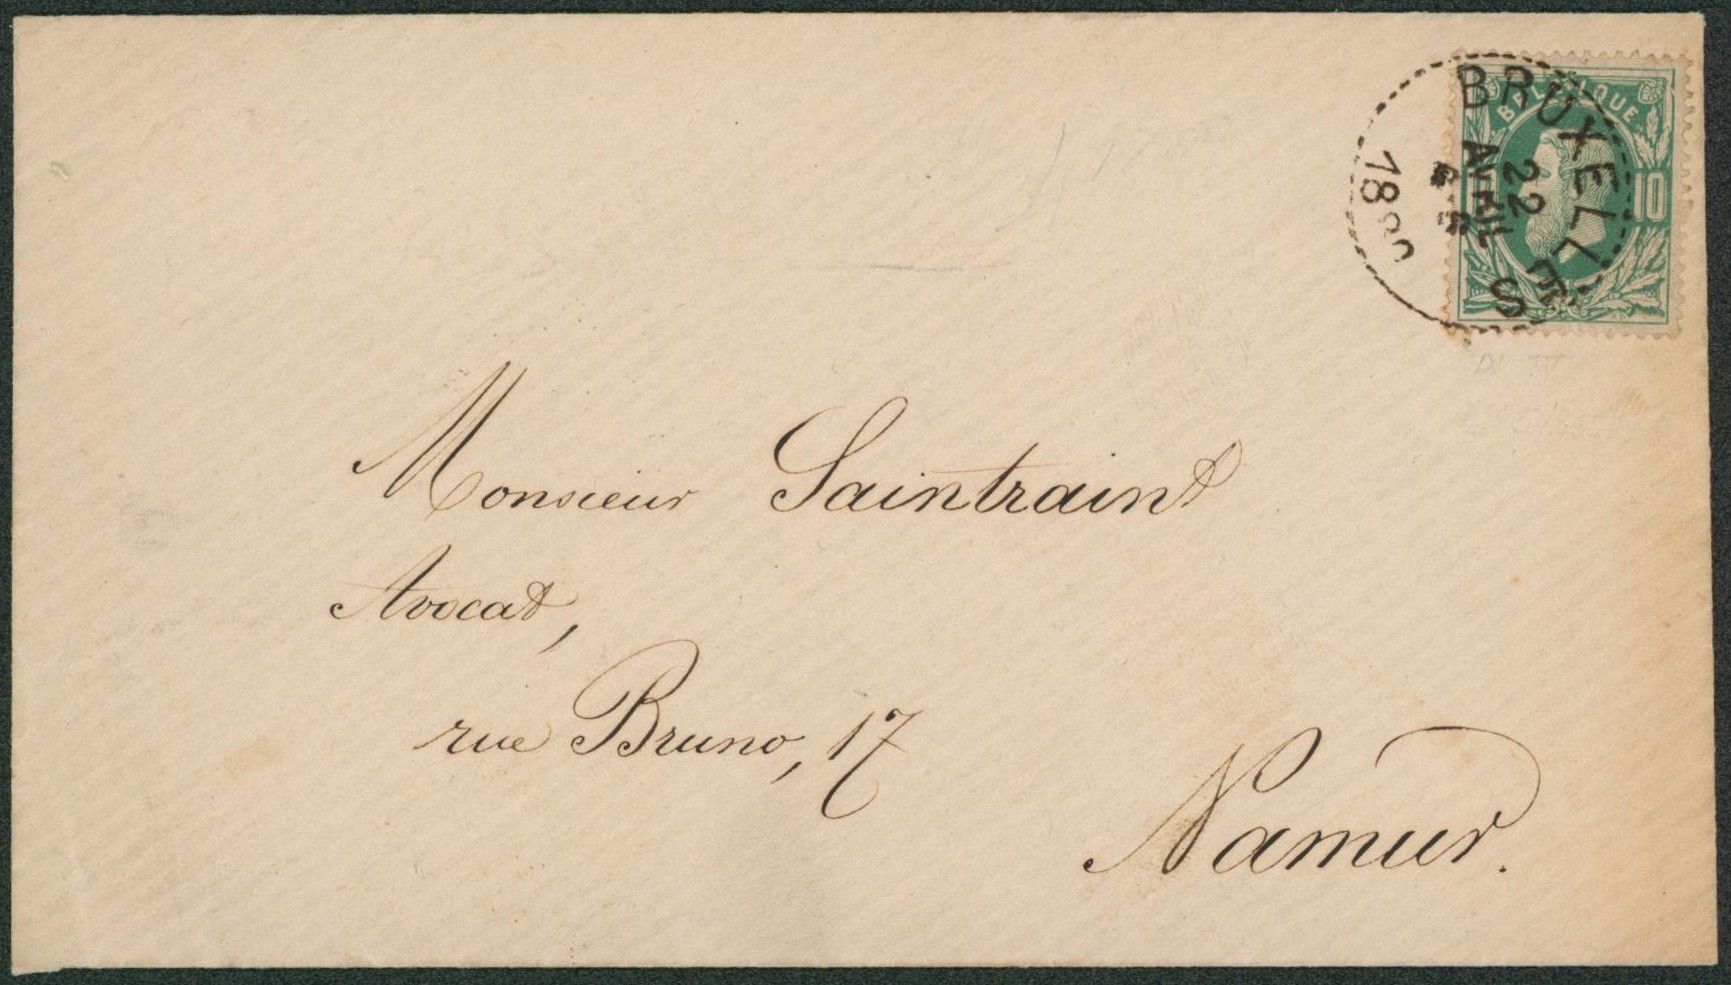 BELGIQUE
10 10
BRUXELLES
22
AVRIL
1880
Monsieur Saintraint
Avocat,
rue Bruno, 17
Namur.